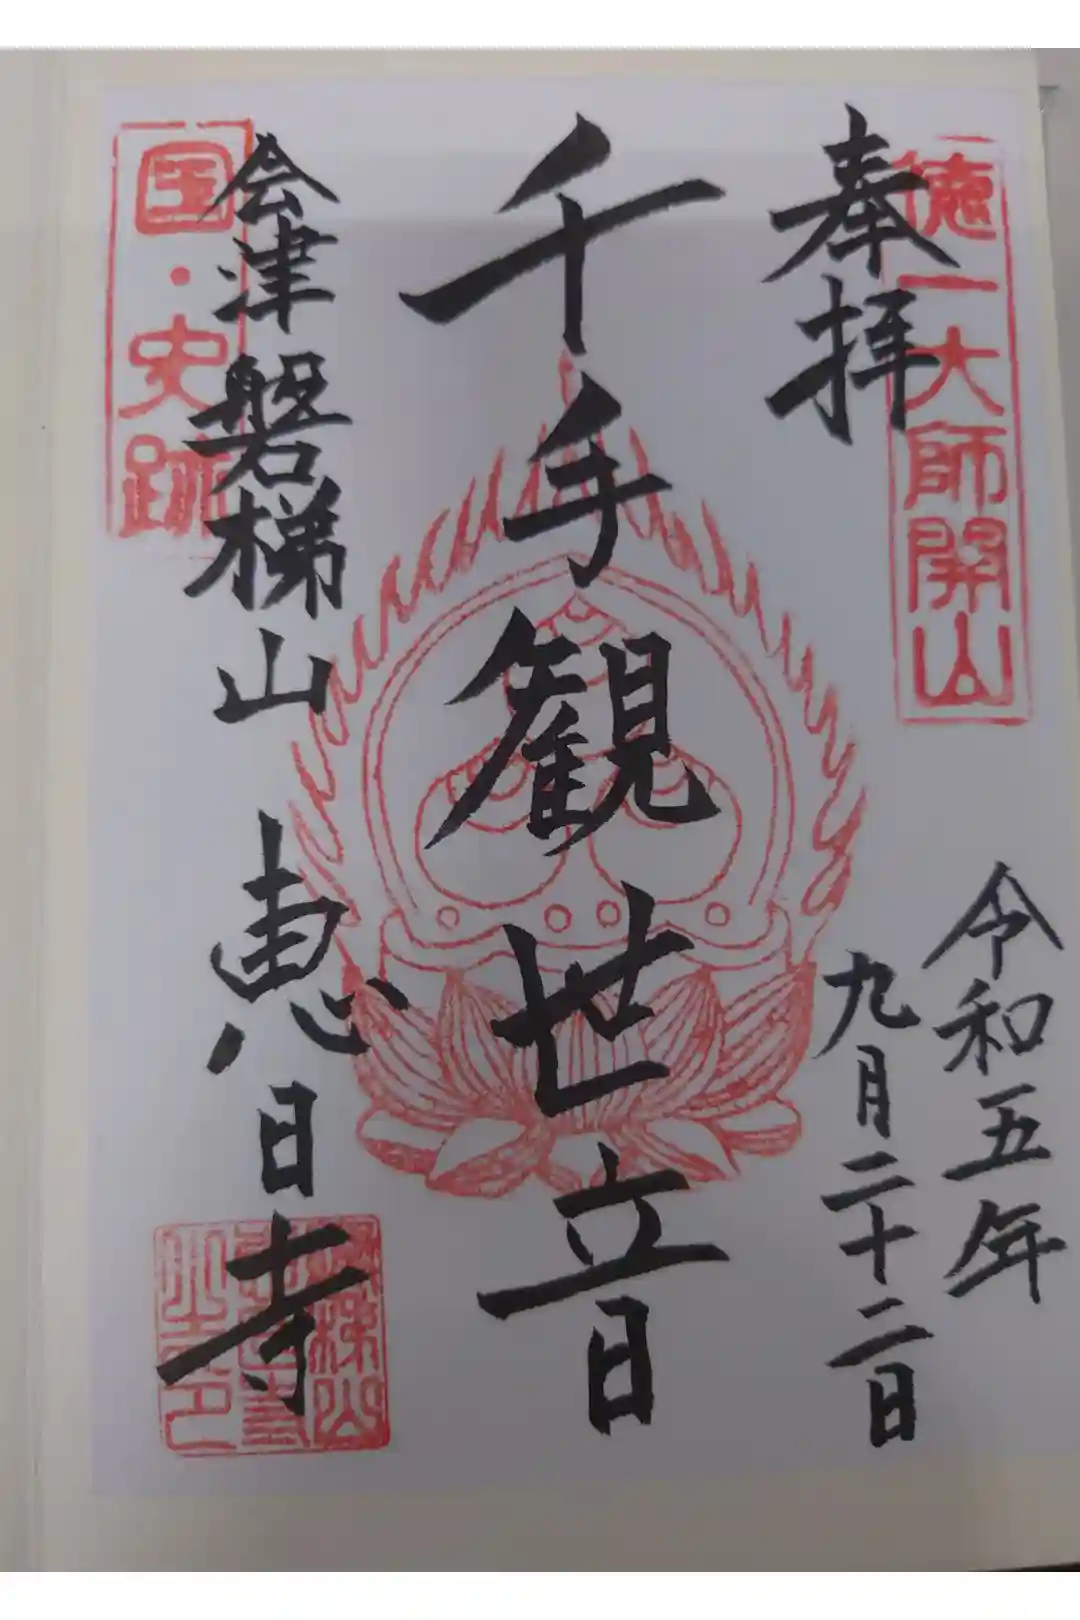 徳一大師開山
奉拝
令和五年
九月二十二日
千手観世音
会津磐梯山 恵日寺
国・史跡